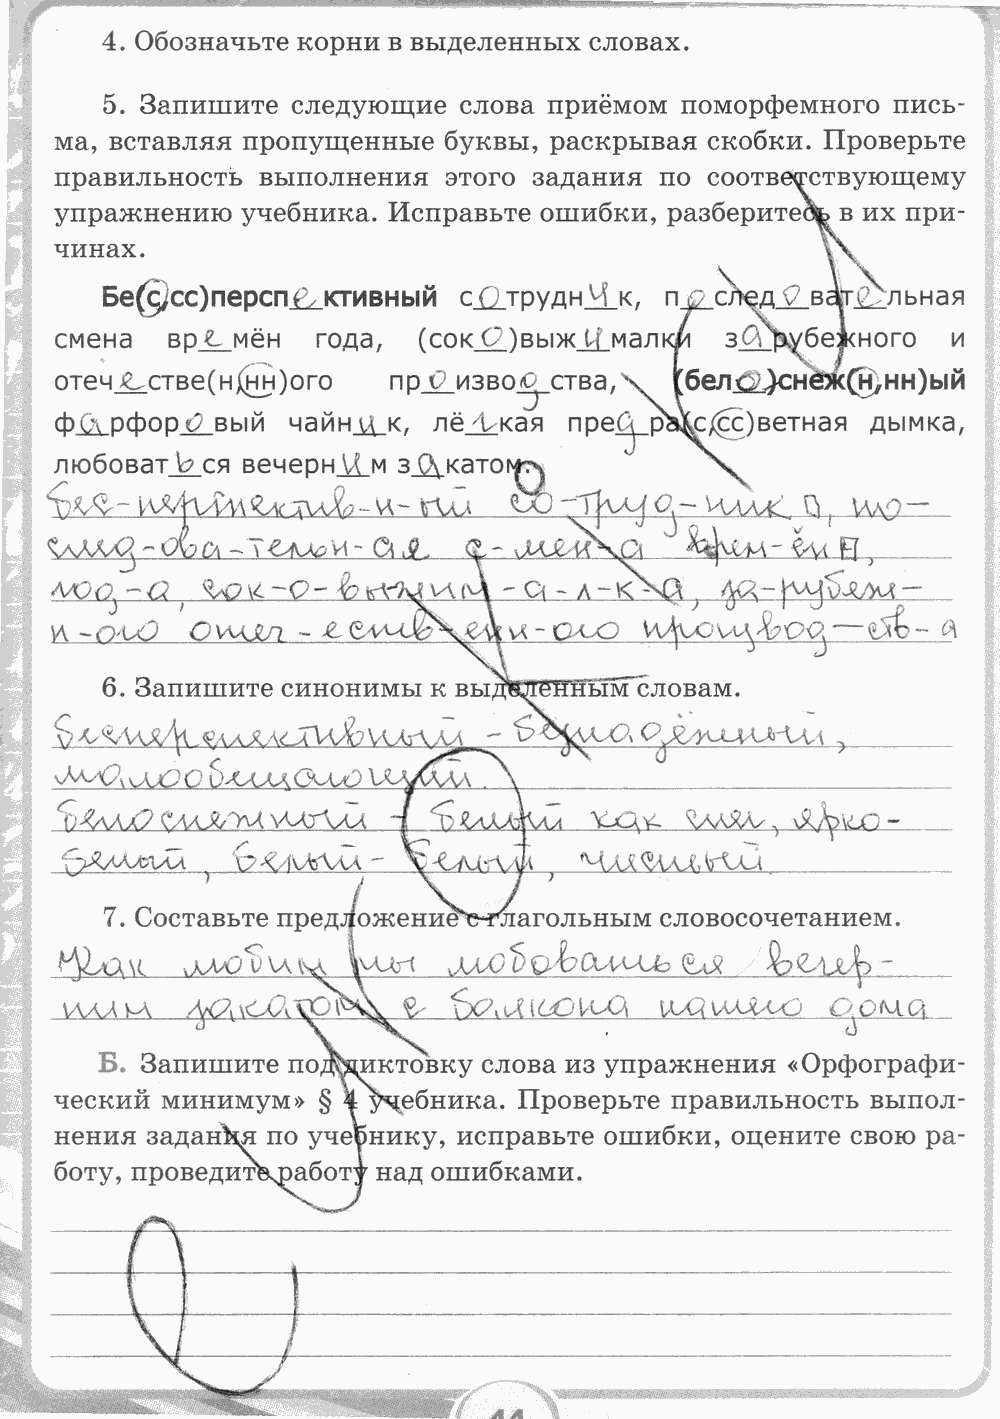 4. Обозначьте корни в выделенных словах.
5. Запишите следующие слова приёмом поморфемного пись-
ма, вставляя пропущенные буквы, раскрывая скобки. Проверьте
правильность выполнения этого задания по соответствующему
упражнению учебника. Исправьте ошибки, разберитесь в их при-
чинах.
Бе(с,сс)перспективный сотрудник, последовательная
смена времён года, (соко)выжималки зарубежного и
отечестве(н,нн)ого производства, (бело)снеж(н,нн)ый
фарфоровый чайник, лёгкая предра(с,сс)ветная дымка,
любоваться вечерним закатом.
бес-перспектив-н-ый со-труд-ник, по-
след-ова-тельн-ая с-мен-а врем-ён,
год-а, сок-о-выжим-а-л-к-а, за-рубеж-
н-ого отеч-еств-енн-ого производ-ств-а
6. Запишите синонимы к выделенным словам.
бесперспективный - безнадёжный,
малообещающий.
белоснежный - белый как снег, ярко-
белый, белый-белый, чистый.
7. Составьте предложение с глагольным словосочетанием.
Как любим мы любоваться вечер-
ним закатом с балкона нашего дома
Б. Запишите под диктовку слова из упражнения «Орфографи-
ческий минимум» § 4 учебника. Проверьте правильность выпол-
нения задания по учебнику, исправьте ошибки, оцените свою ра-
боту, проведите работу над ошибками.